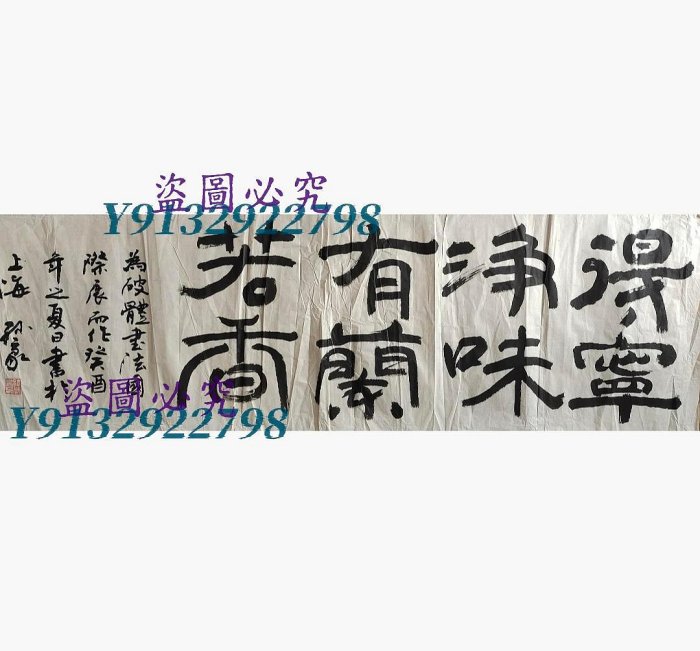 盜圖必究
Y9132922798
得寧
淨味
有蘭
若香
為破體書法國
際展而作癸酉
年之夏日書於
上海
盜圖必究
Y9132922798